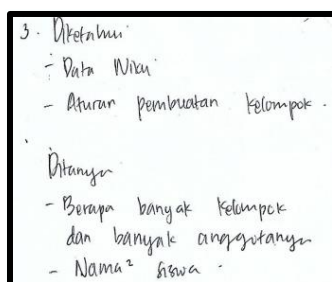 3. Diketahui
- Data Niku
- Aturan pembuatan kelompok.
Ditanya
- Berapa banyak kelompok
dan banyak anggotanya
- Nama² siswa.